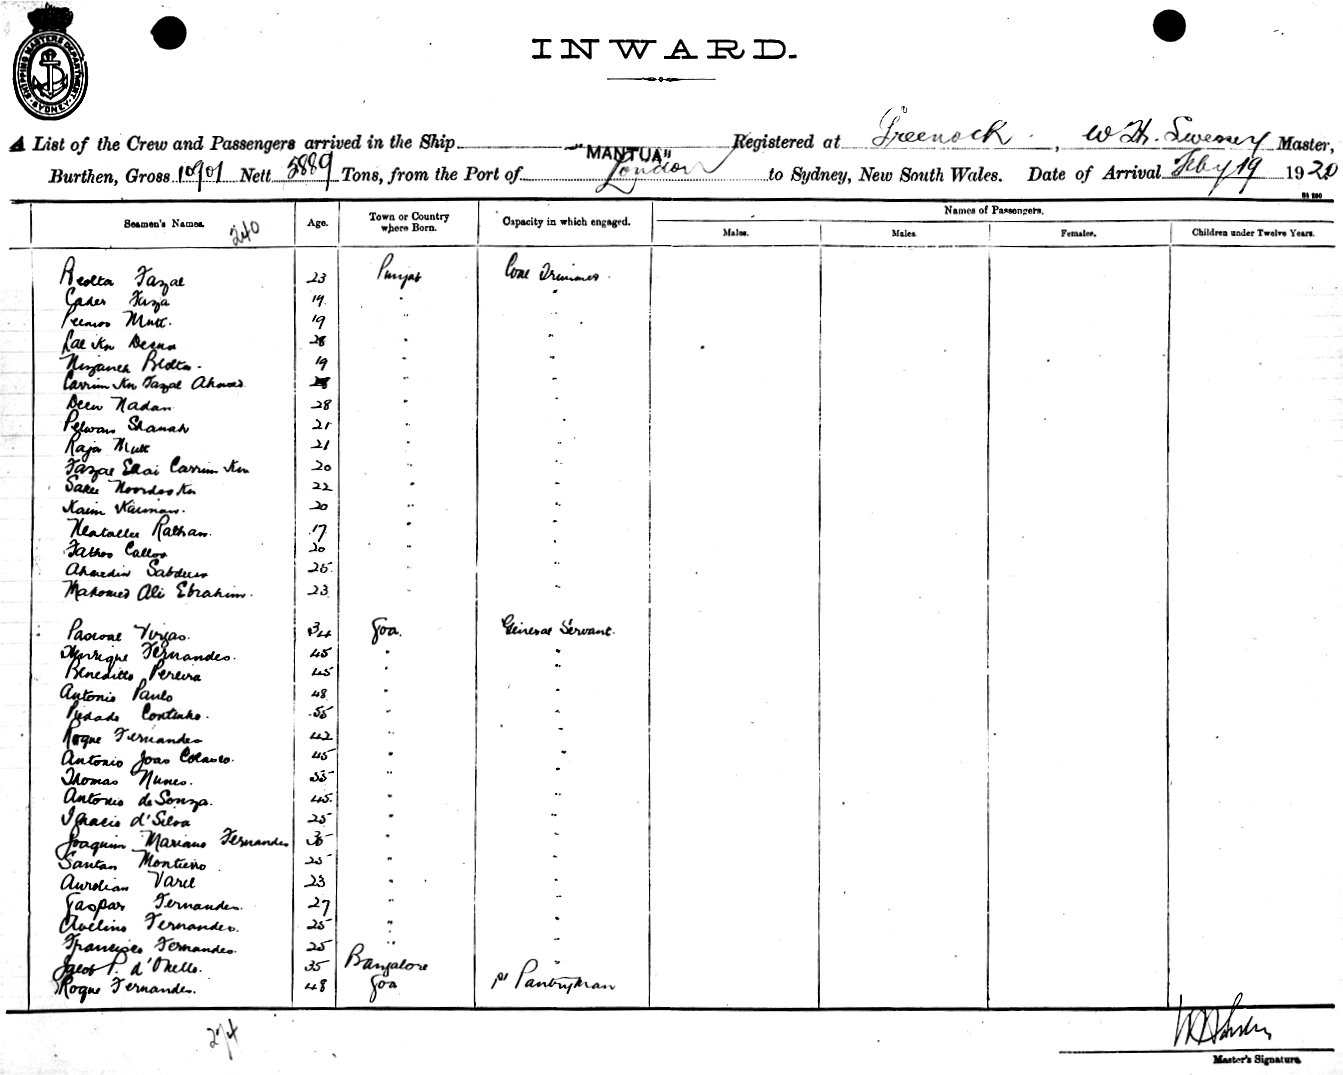 SHIPPING MASTERS DEPARTMENT SYDNEY
INWARD.
A List of the Crew and Passengers arrived in the Ship "MANTUA" Registered at Greenock, W H. Sweeney Master,
Burthen, Gross 10901 Nett 5889 Tons, from the Port of London to Sydney, New South Wales. Date of Arrival Feby 19 1920
Seamen's Names. 240 Age. Town or Country where Born. Capacity in which engaged. Names of Passengers.
Males. Males. Females. Children under Twelve Years.
Fazal 23 Punjab Coal Trimmer
Cader Faza 19 " "
Mutt. 19 " "
Lal Kn Deena 28 " "
19 " "
Carrim Kn Fazal Ahmed " "
Deen Nadan 28 " "
Pelwan Shamah 21 " "
Raja Mutt 21 " "
Fazal Elai Carrim Kn 20 " "
Noordoo Kn 22 " "
Kaim 20 " "
Rathan. 17 " "
Calloo 20 " "
Ahmedin 25 " "
Mahomed Ali Ebrahim. 23 " "
Pascoal 34 Goa. General Servant.
Fernandes. 45 " "
Benedicto Pereira 45 " "
Antonio Paulo 48 " "
Piedade Continho. 55 " "
Roque Fernandes 42 " "
Antonio Joao Colasco. 45 " "
Thomas Nunes. 35 " "
Antonio de Souza. 45 " "
Ignacio d'Silva 25 " "
Joaquim Mariano Fernandes 35 " "
Santan Monteiro 25 " "
Aurelian Varel 23 " "
Gaspar Fernandes. 27 " "
Avelino Fernandes. 25 " "
Francisco Fernandes. 25 " "
Jacob P. d'Mello. 35 Bangalore "
Roque Fernandes. 48 Goa Pantryman
274
Master's Signature.